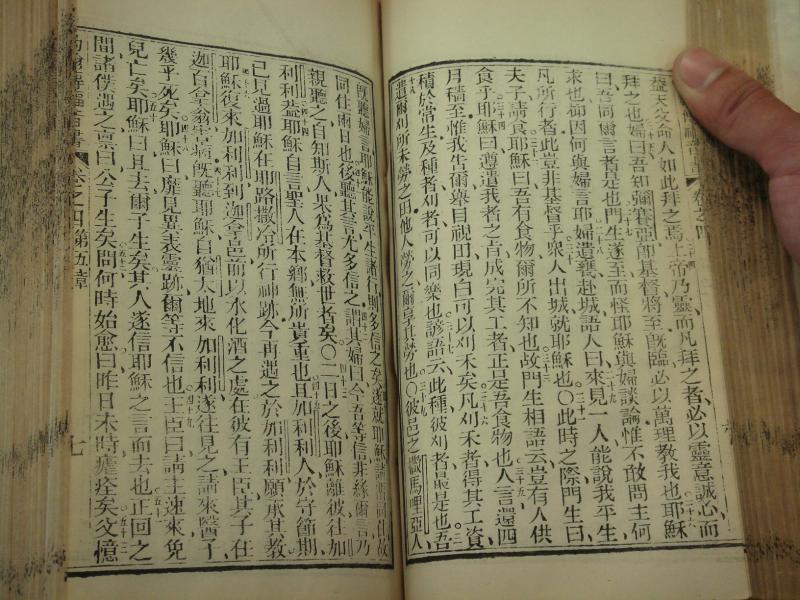 益天父命人如此拜之焉上帝乃靈而凡拜之者必以靈意誠心而
拜之也婦曰吾知彌賽亞即基督將至既臨必以萬理教我也耶穌
曰吾同爾言者是也門生遂至而怪耶穌與婦談論惟不敢問主何
求也抑因何與婦言耶婦遺甕赴城語人曰來見一人能說我平生
凡所行者此豈非基督乎眾人出城就耶穌也〇此時之際門生曰
夫子請食耶穌曰吾有食物爾所不知也故門生相語云豈有人供
食乎耶穌曰遵遣我者之肯成完其工者正是吾食物也人言還四
月穡至惟我告爾舉目視田現白可以刈禾矣凡刈禾者得其工資
積於常生及種者刈者可以同樂也諺語云此種彼刈者最是也吾
遣爾刈所未勞之田他人勞之爾享其勞也〇彼邑之撒馬哩亞人
既聽婦言耶穌能說平生諸行則多信之矣遂就耶穌請
同住爾日也後聽其言尤多信之謂其婦曰今吾等信非緣爾言乃
親聽之自知斯人果為基督救世者矣〇二日之後耶穌離彼往加
利利益耶穌自言聖人在本鄉無所貴重也且加利利人於守節期
已見過耶穌在耶路撒冷所行神跡今再遇之於加利利願承其教
耶穌復來加利利到迦拿邑前以水化酒之處在彼有王臣其子在
迦百拿翁害病既聽耶穌自猶太地來加利利遂往見之請來醫了
幾乎死矣耶穌曰靡見異表靈跡爾等不信也王臣曰請主速來免
兒亡矣耶穌曰且去爾子生矣其人遂信耶穌之言而去也正回之
間諸僕遇之稟曰公子生矣問何時始愈曰昨日未時瘧痊矣父憶
音書 卷之四第五章 七